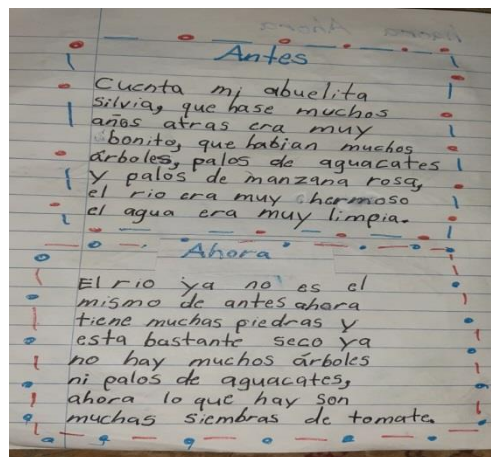 Antes
Cuenta mi abuelita
Silvia, que hase muchos
años atras era muy
bonito, que habian muchos
árboles, palos de aguacates
y palos de manzana rosa,
el rio era muy hermoso
el agua era muy limpia.
Ahora
El rio ya no es el
mismo de antes ahora
tiene muchas piedras y
esta bastante seco ya
no hay muchos árboles
ni palos de aguacates,
ahora lo que hay son
muchas siembras de tomate.